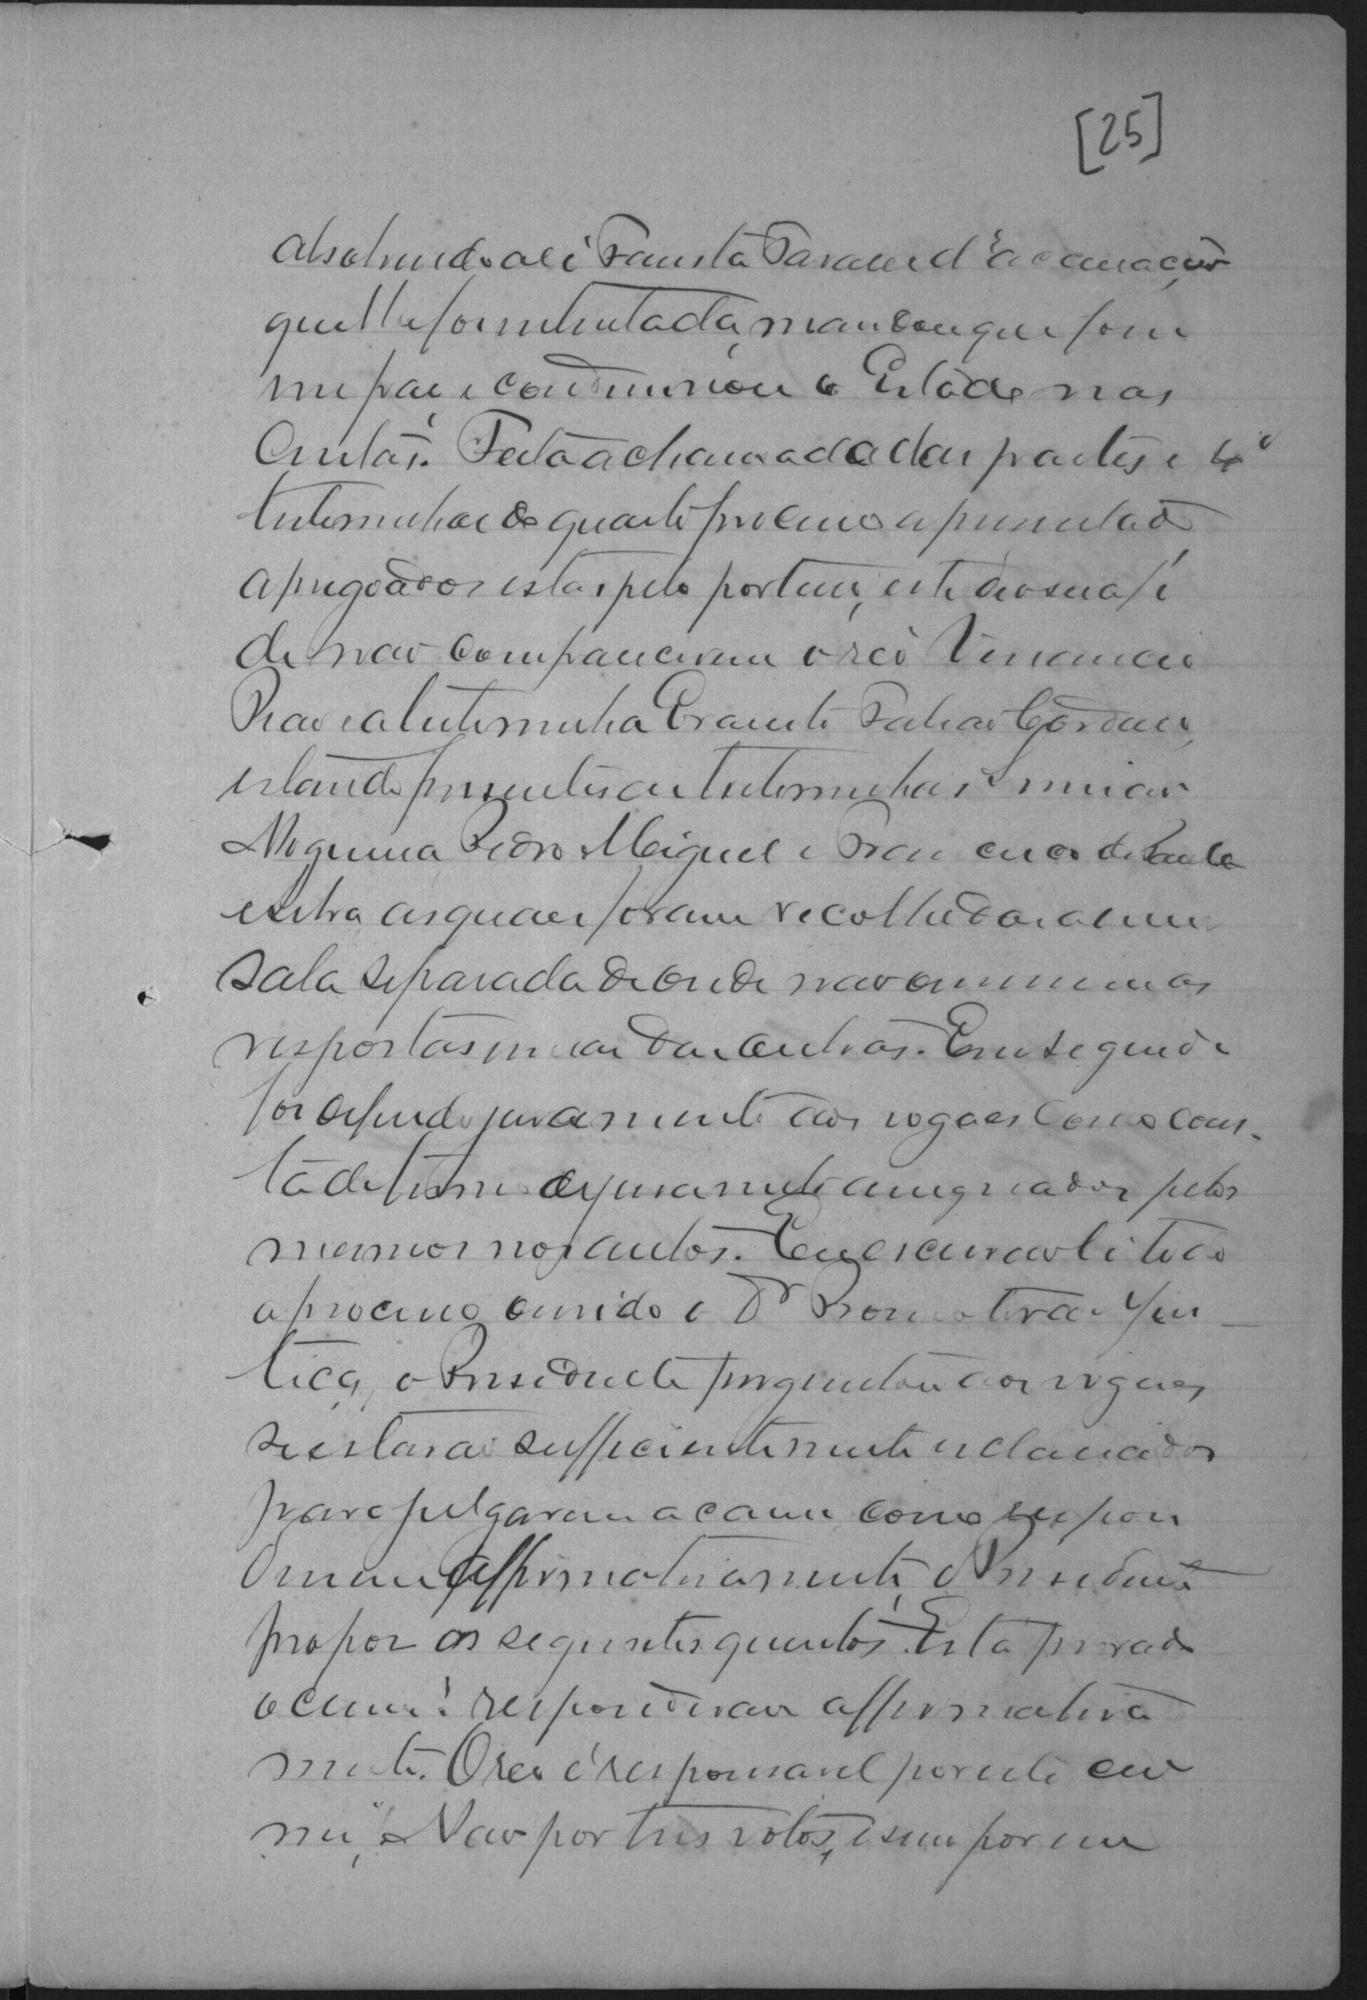 [25]
absolvendo a ré Fausta Tavares d'accusação
que lhe foi intentada, mandou que fosse
em paz e condemnou o Estado nas
Custas. Feita a chamada das partes e
testemunhas do quarto processo apresentado
apregoados estas pelo porteiro, este deo sua fé
de não compareceram o reo Venancio
e a testemunha
estando presentes as testemunhas
Nogueira Pedro Miguel e Francisco de Paula
as quaes foram recolhidas a uma
sala separada de onde não ouvissem as
respostas umas das outras. Em seguida
foi deferido juramento aos vogaes como cons-
ta do termo de juramento assignados pelos
mesmos nos autos. Em escansão lido
o processo ouvido o Dr Promotor da Jus-
tiça, o Presidente perguntou aos vogaes
se estavão sufficientemente esclarecidos
para julgarem a causa, como respon
deram affirmativamente, o Presidente
propoz os seguintes quesitos. Está provado
o crime? responderam affirmativa
mente. O reo é responsavel por este cri
me? Não por tres votos, e sim por um